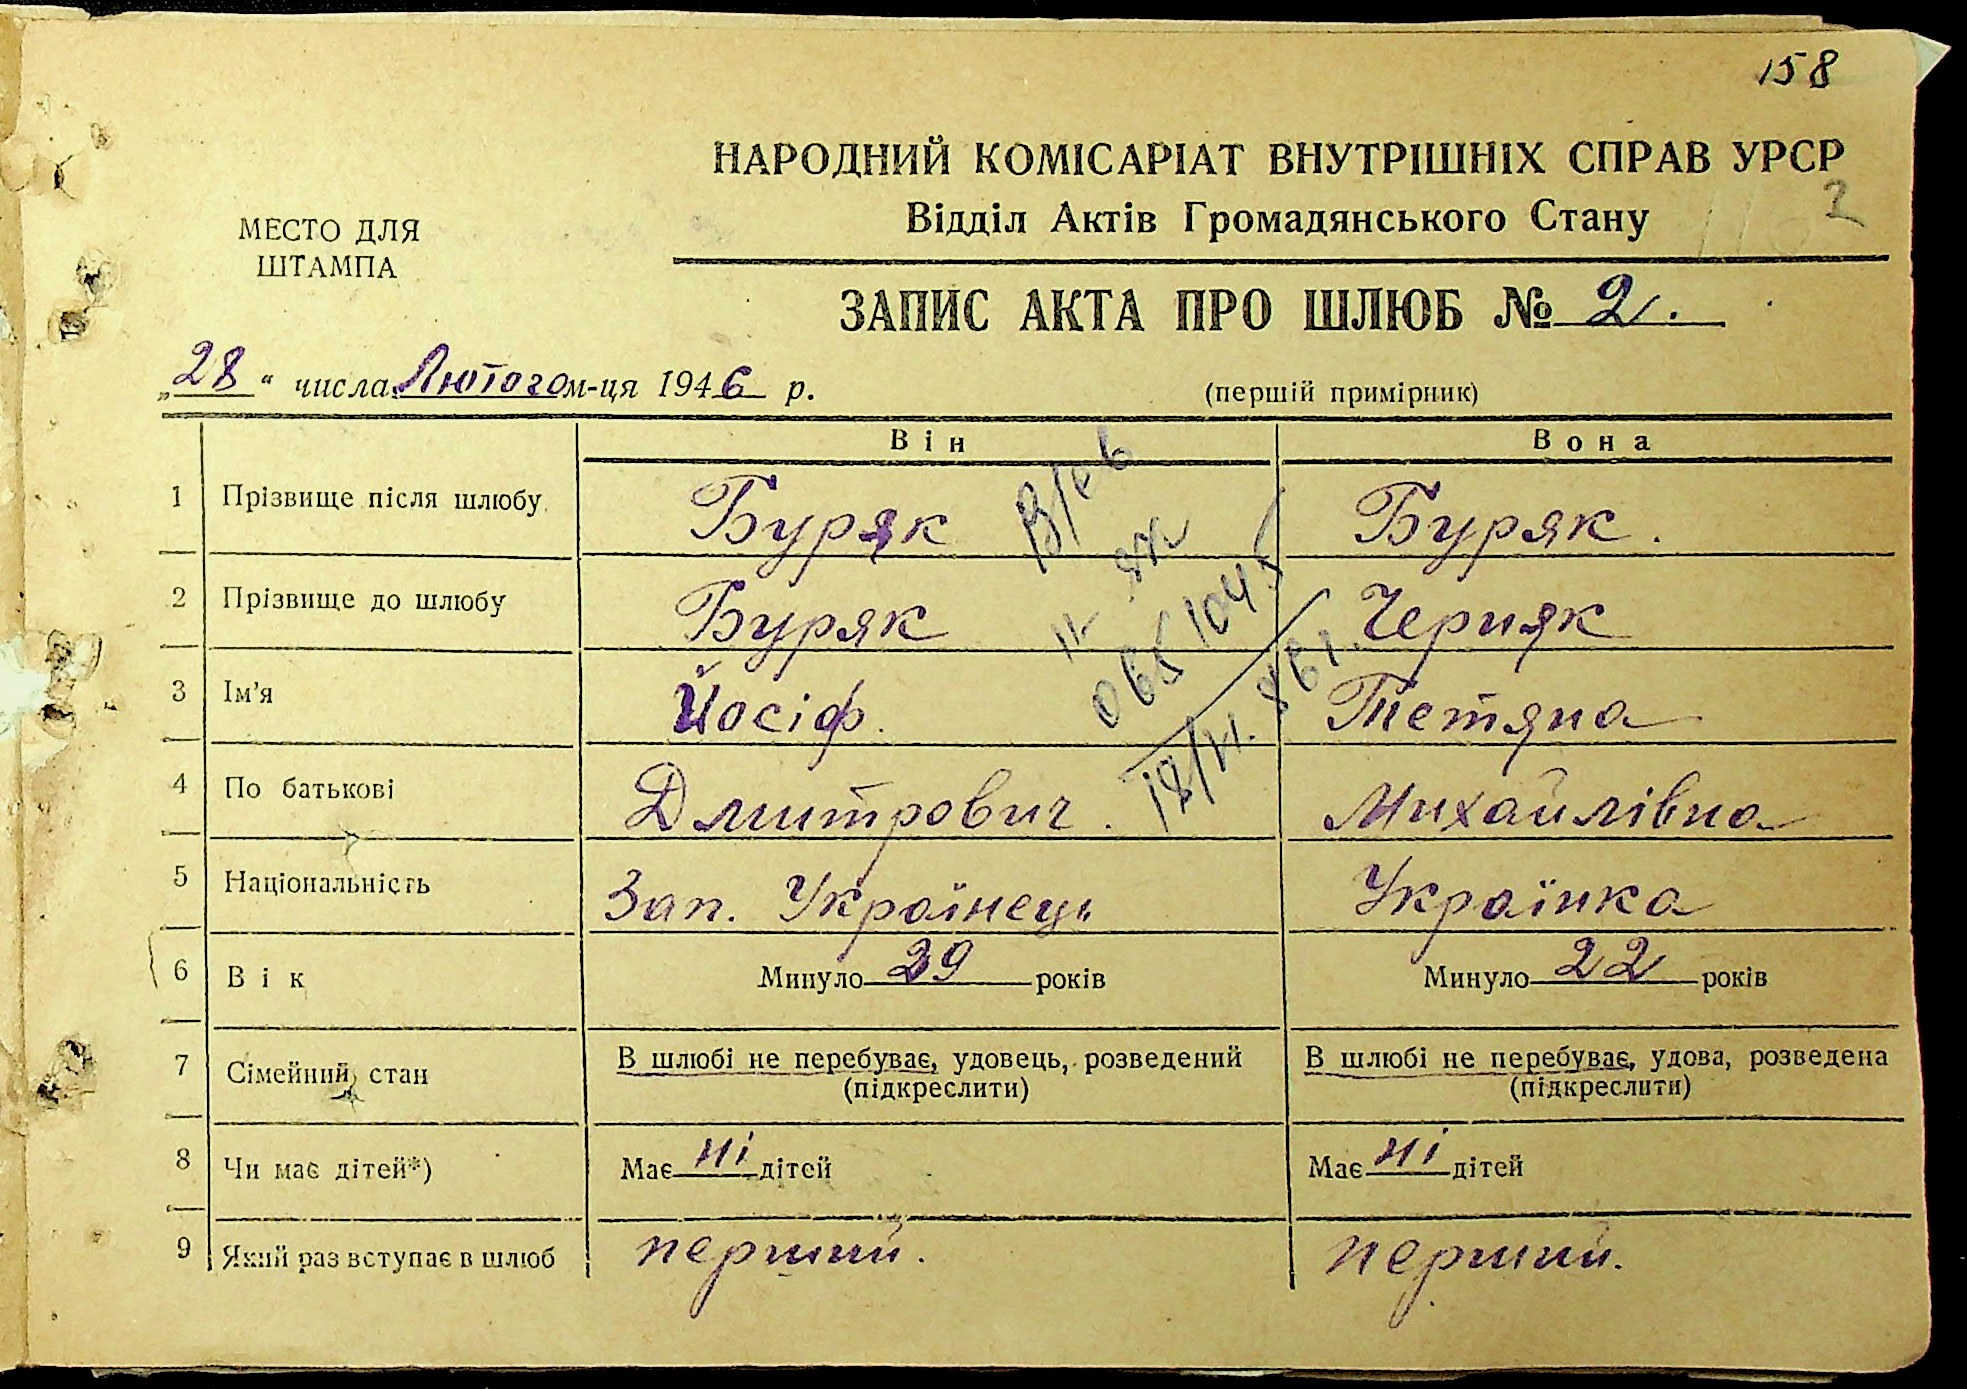 158
НАРОДНИЙ КОМІСАРІАТ ВНУТРІШНІХ СПРАВ УРСР
2
Відділ Актів Громадянського Стану
МЕСТО ДЛЯ
ШТАМПА
ЗАПИС АКТА ПРО ШЛЮБ № 2.
„28“ числа Лютого м-ця 1946 р.
(першій примірник)
Він Вона
1 Прізвище після шлюбу Буряк Буряк.
2 Прізвище до шлюбу Буряк Черняк
3 Ім'я Йосіф. Тетяна
4 По батькові Дмитрович. Михайлівна
5 Національність Зап. Українець Українка
6 Вік Минуло 39 років Минуло 22 років
7 Сімейний стан В шлюбі не перебуває, удовець, розведений В шлюбі не перебуває, удова, розведена
(підкреслити) (підкреслити)
8 Чи має дітей*) Має ні дітей Має ні дітей
9 Який раз вступає в шлюб перший. перший.